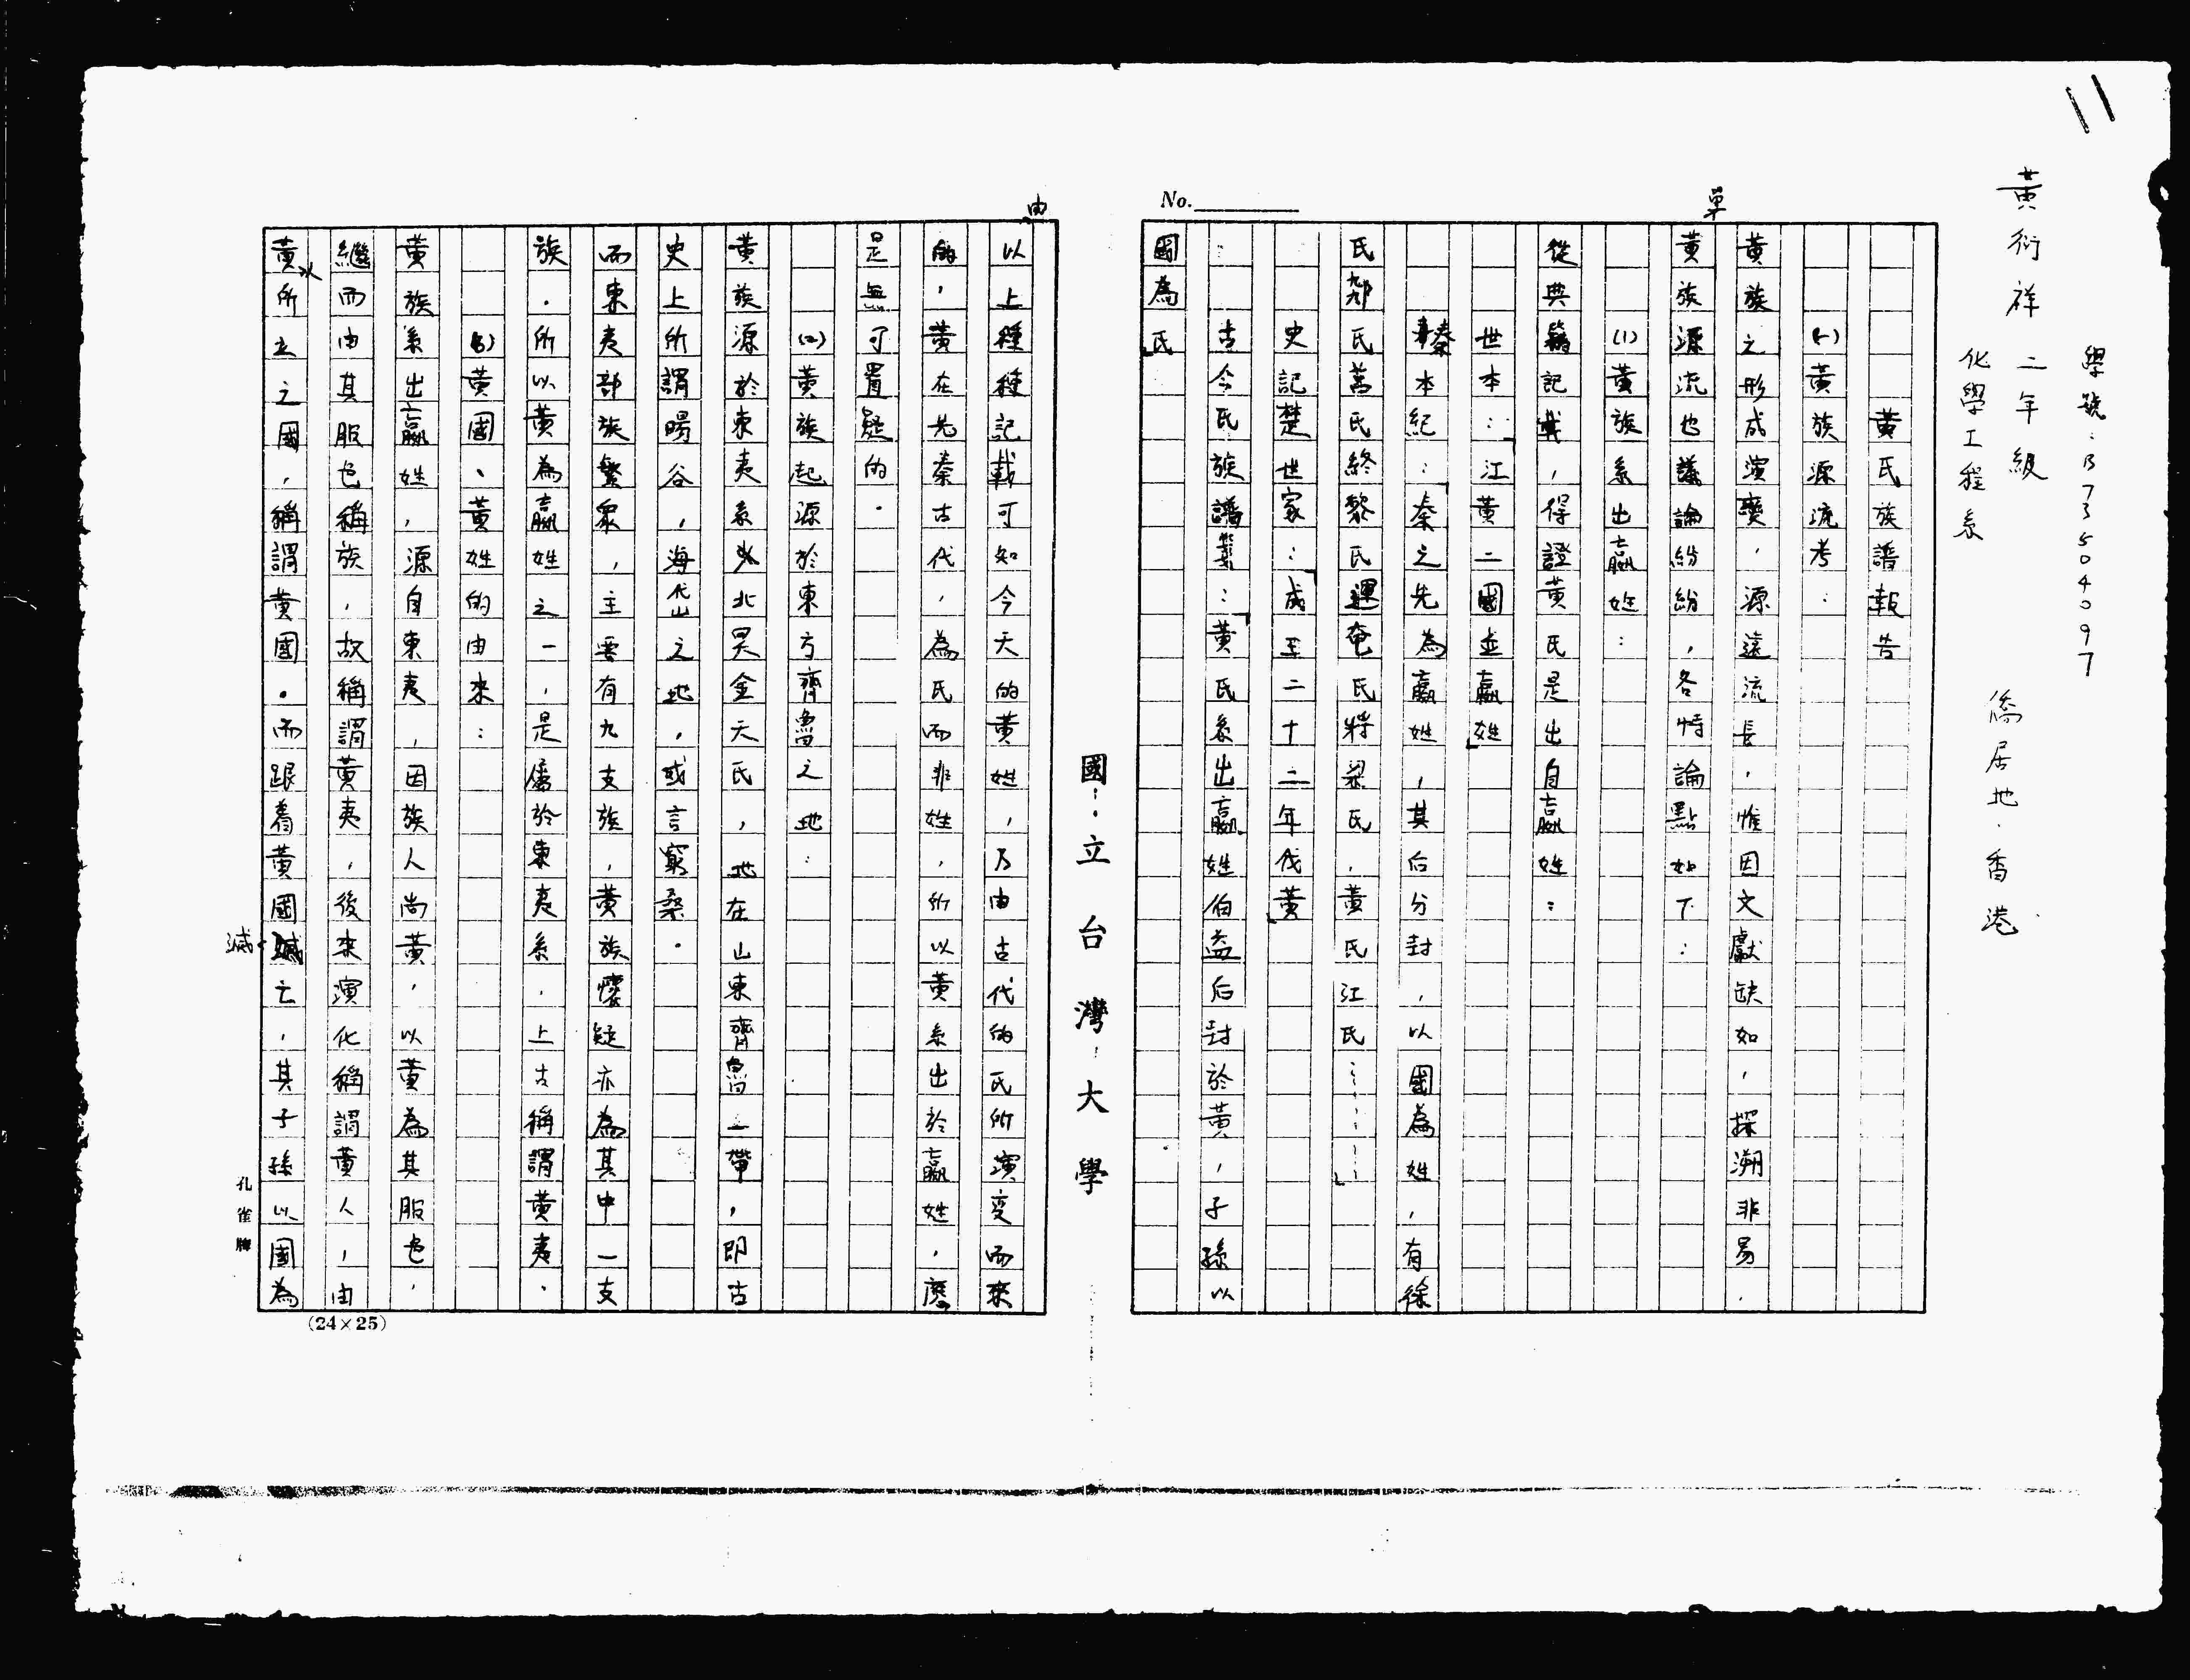 11
學號：B73504097
黃衍祥 二年級 僑居地．香港
化學工程系
黃氏族譜報告
(一)黃族源流考：
黃族之形成演變，源遠流長，惟因文獻缺如，探溯非易．
單
黃族源流也議論紛紛，各特論點如下：
(1)黃族系出嬴姓：
從典籍記載，得證黃氏是出自嬴姓：
世本：「江黃二國並嬴姓」
秦本紀：「秦之先為嬴姓，其后分封，以國為姓，有徐
氏郯氏莒氏終黎氏運奄氏菟裘氏將梁氏，黃氏江氏……」
史記楚世家：「成王二十二年伐黃」
古今氏族譜纂：「黃氏系出嬴姓伯益后封於黃，子孫以
國為氏」
No.
國立台灣大學
由
以上種種記載可知今天的黃姓，乃由古代的氏所演变而來
的，黃在先秦古代，為氏而非姓，所以黃系出於嬴姓，應
是無可置疑的．
(2)黃族起源於東方齊魯之地：
黃族源於東夷系少昊金天氏，地在山東齊魯一帶，即古
史上所謂暘谷，海岱之地，或言窮桑．
而東夷部族繁衆，主要有九支族，黃族懷疑亦為其中一支
族．所以黃為嬴姓之一，是屬於東夷系．上古稱謂黃夷．
(3)黃國、黃姓的由來：
黃族系出嬴姓，源自東夷，因族人尚黃，以黃為其服色．
繼而由其服色稱族，故稱謂黃夷，後來演化稱謂黃人，由
黃人所立之國，稱謂黃國．而跟着黃國滅亡，其子孫以國為
滅
孔雀牌
(24×25)